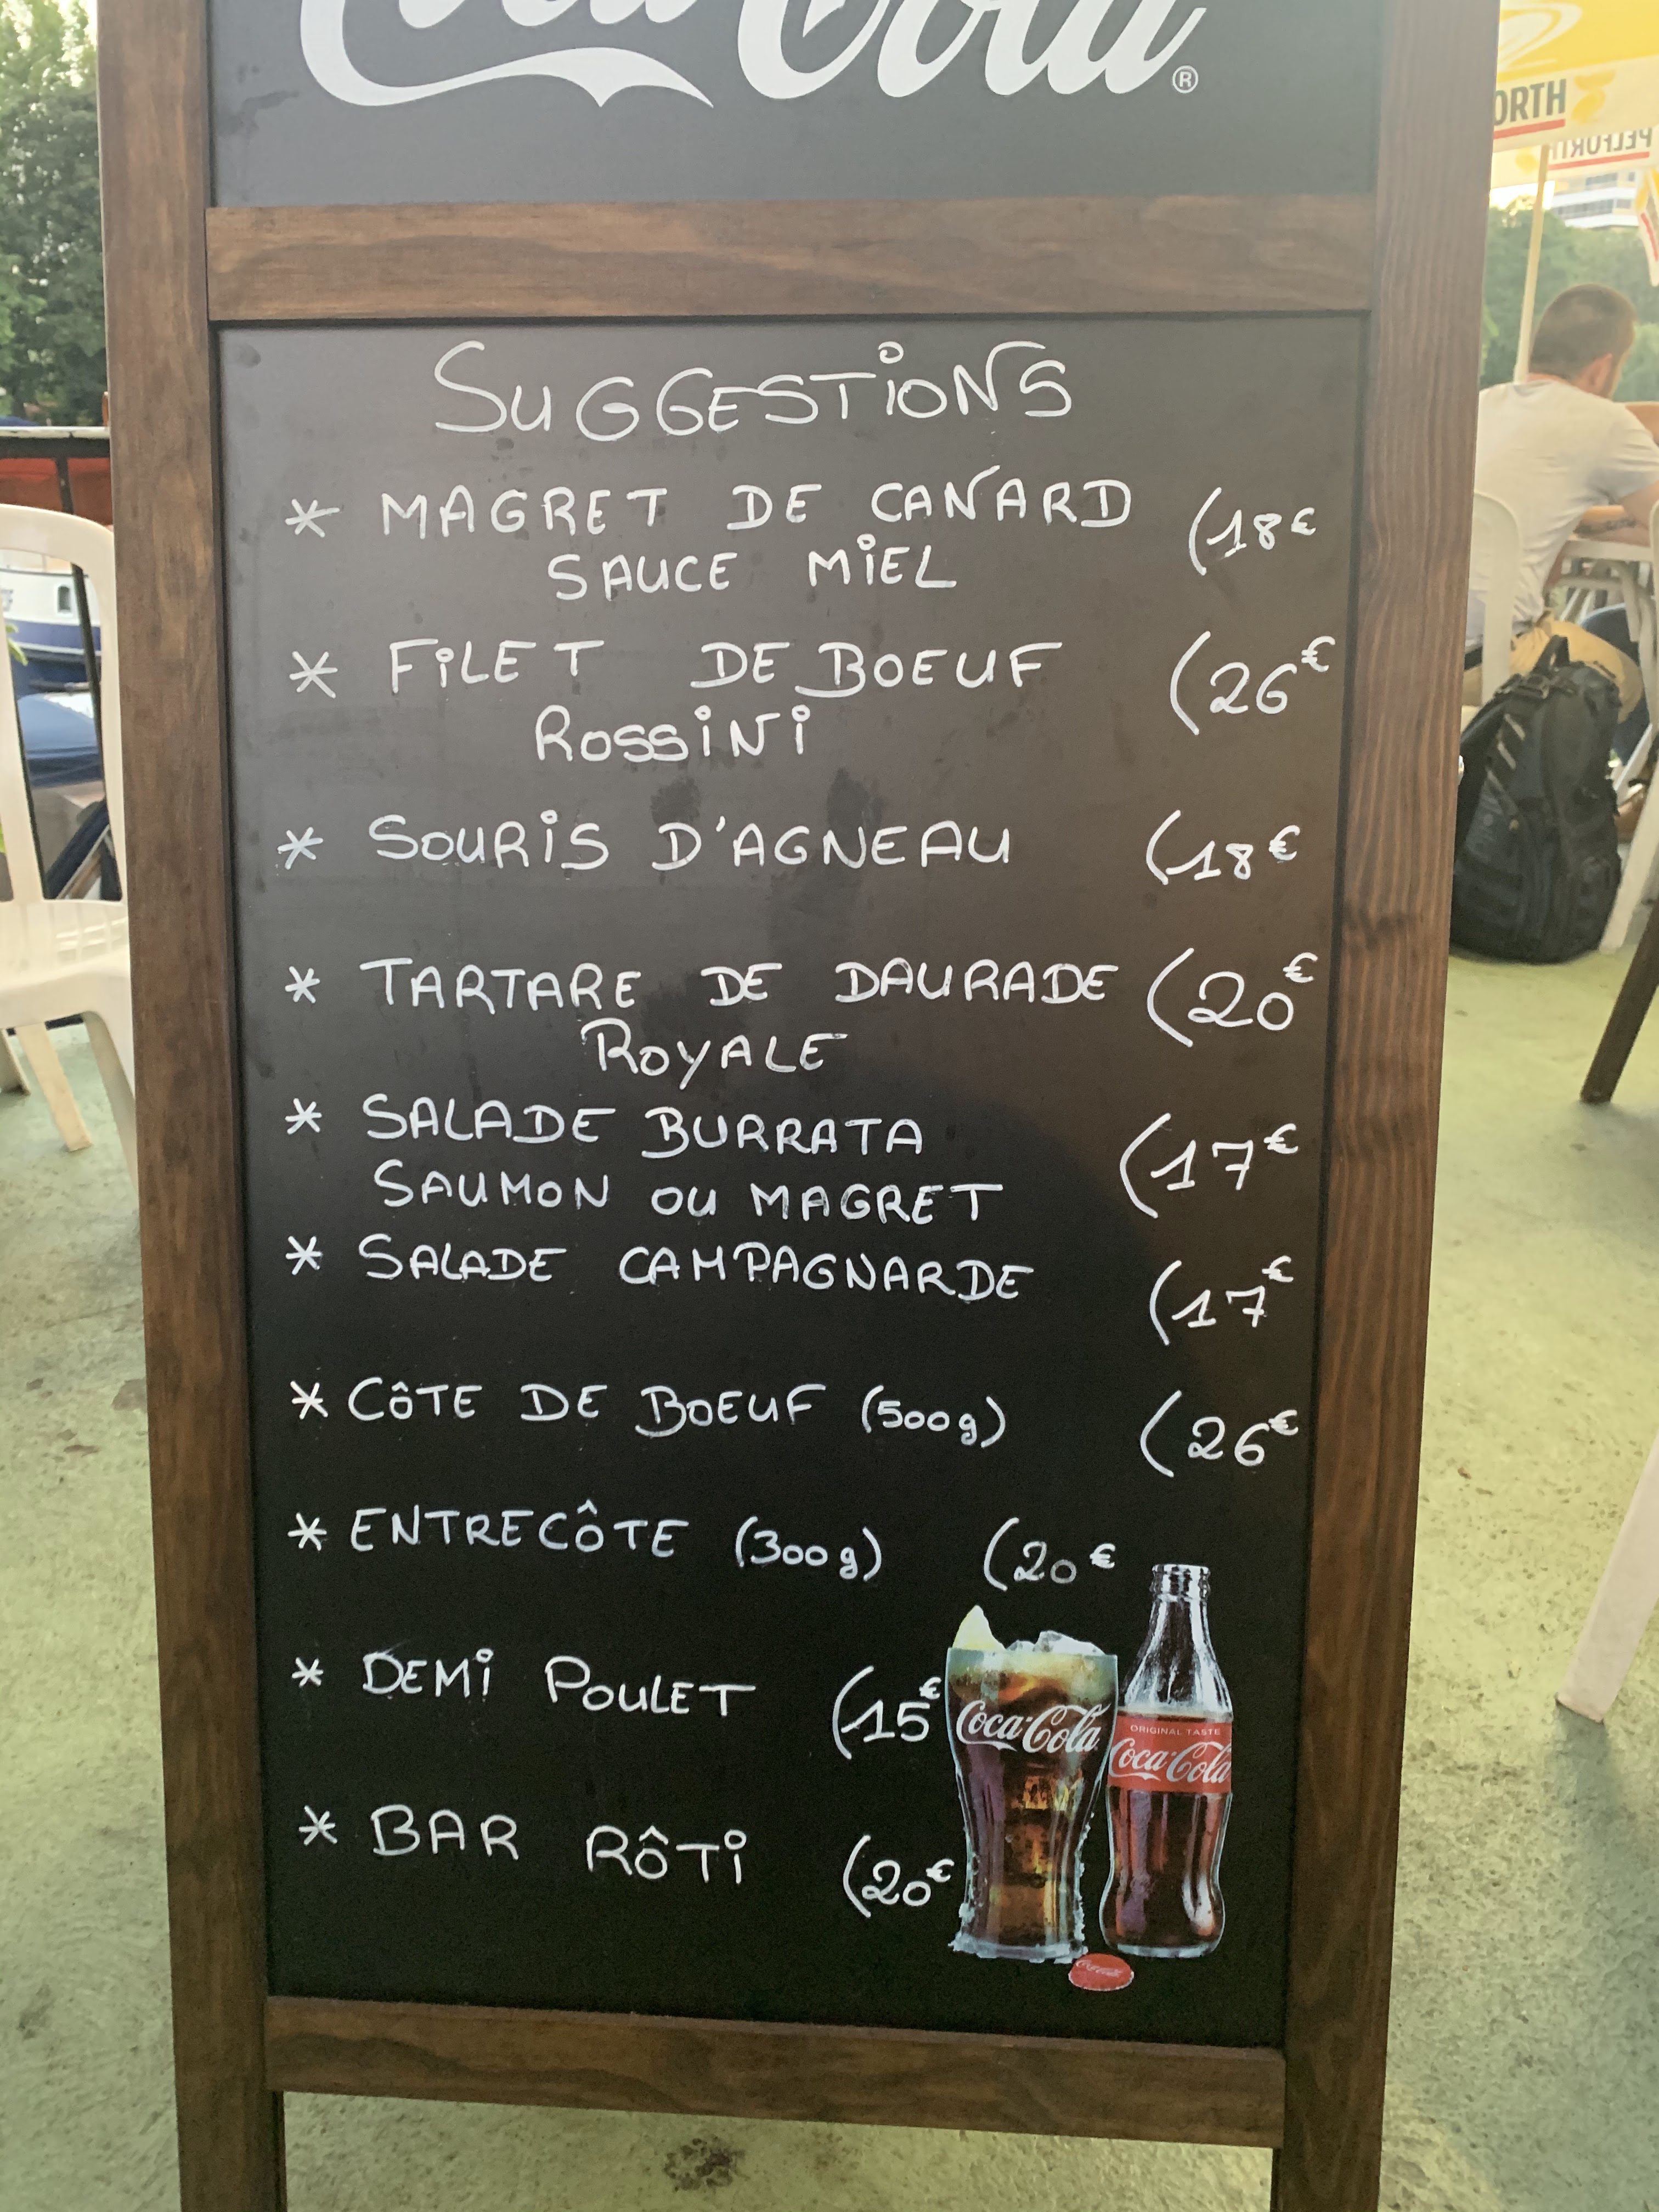 Coca-Cola®
ORTH
PELFORTH
SUGGESTIONS
* MAGRET DE CANARD (18€
SAUCE MIEL
* FILET DE BOEUF (26€
ROSSINI
* SOURIS D'AGNEAU (18€
* TARTARE DE DAURADE (20€
ROYALE
* SALADE BURRATA (17€
SAUMON OU MAGRET
* SALADE CAMPAGNARDE (17€
* CÔTE DE BOEUF (500g) (26€
* ENTRECÔTE (300g) (20€
* DEMI POULET (15€
* BAR RÔTI (20€
Coca-Cola
ORIGINAL TASTE
Coca-Cola